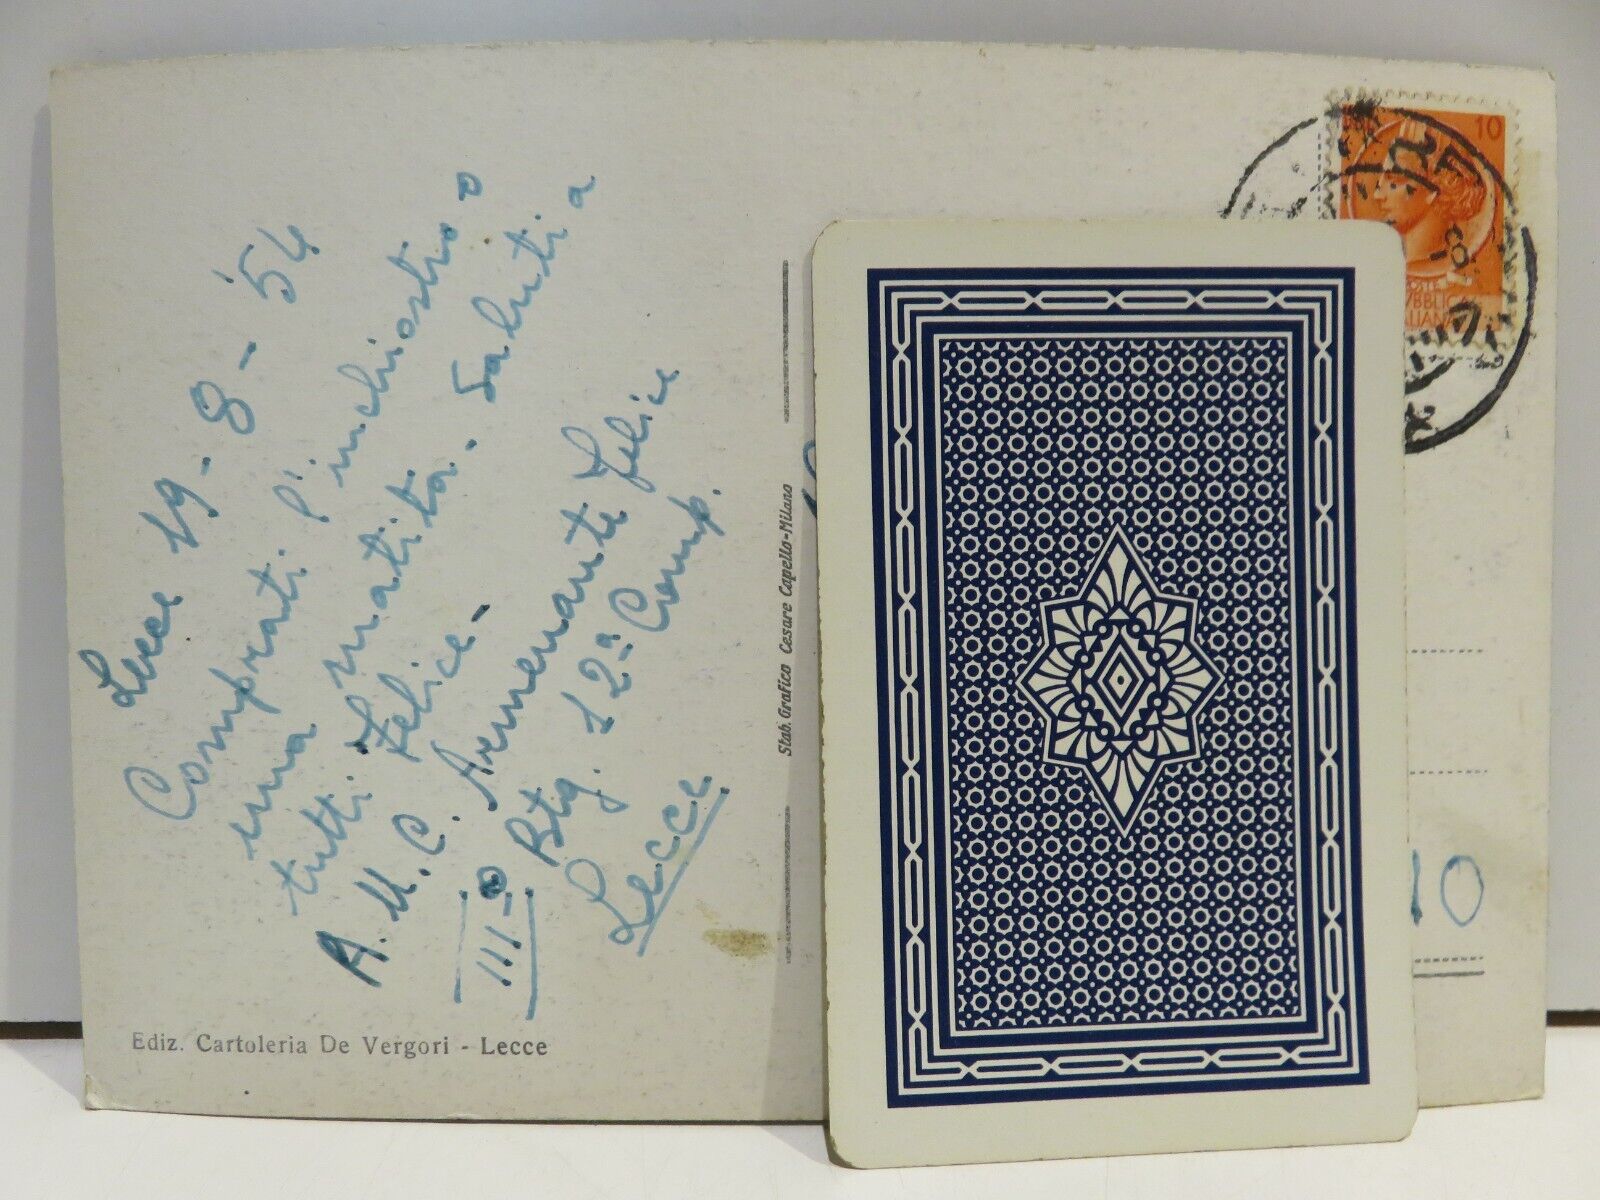 Lecce 19-8-54
Comprati l'inchiostro o
una matita. Saluti a
tutti.
Felice.
A.U.C. Armenante Felice
III-o Btg. 12a Comp.
Lecce
Ediz. Cartoleria De Vergori - Lecce
Stab. Grafico Cesare Capello-Milano
10
POSTE
10